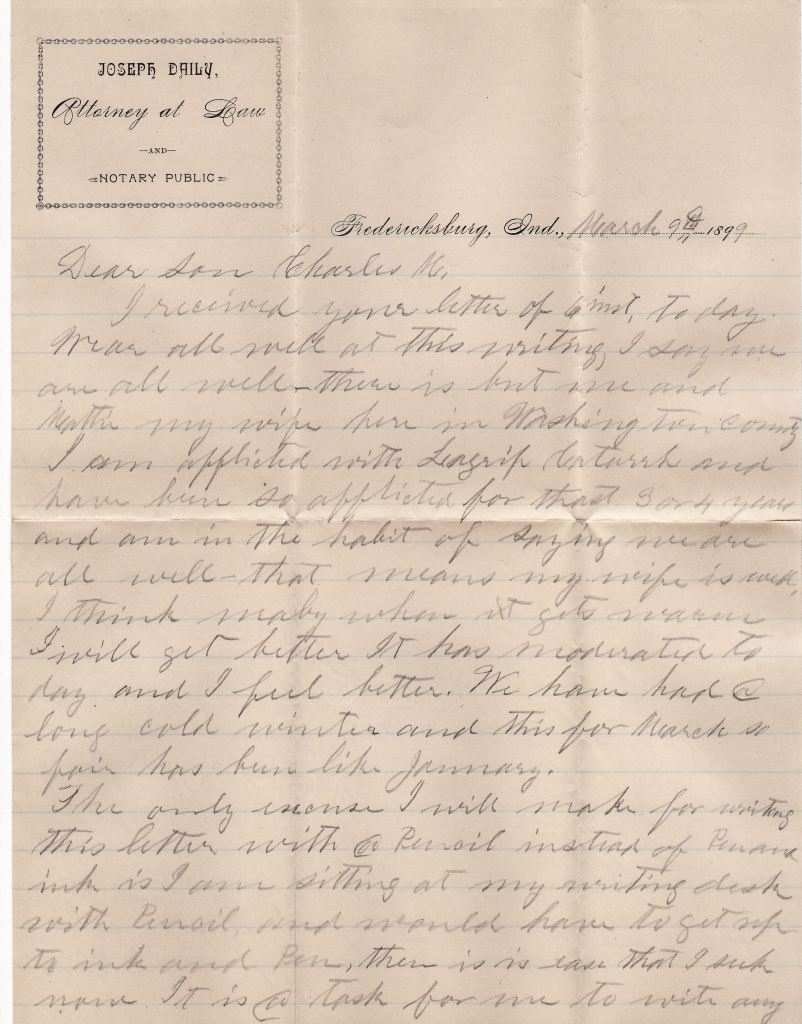 JOSEPH DAILY,
Attorney at Law
—AND—
NOTARY PUBLIC
Fredericksburg, Ind., March 9th 1899
Dear Son Charles M.
I received your letter of 6 inst, to day.
We ar all well at this writing, I say we
are all well - there is but me and
Mattie my wife here in Washington County
I am afflicted with Lagrip Catarrh and
have been so afflicted for 3 or 4 years
and am in the habit of saying we are
all well - that means my wife is well,
I think maby when it gets warm
I will get better It has moderated to
day and I feel better. We have had a
long cold winter and this far March so
far has been like January.
The only excuse I will make for writing
this letter with a Pencil instead of Pen and
ink is I am sitting at my writing desk
with Pencil, and would have to get up
to ink and Pen, then is is ease that I seek
now. It is a task for me to write any